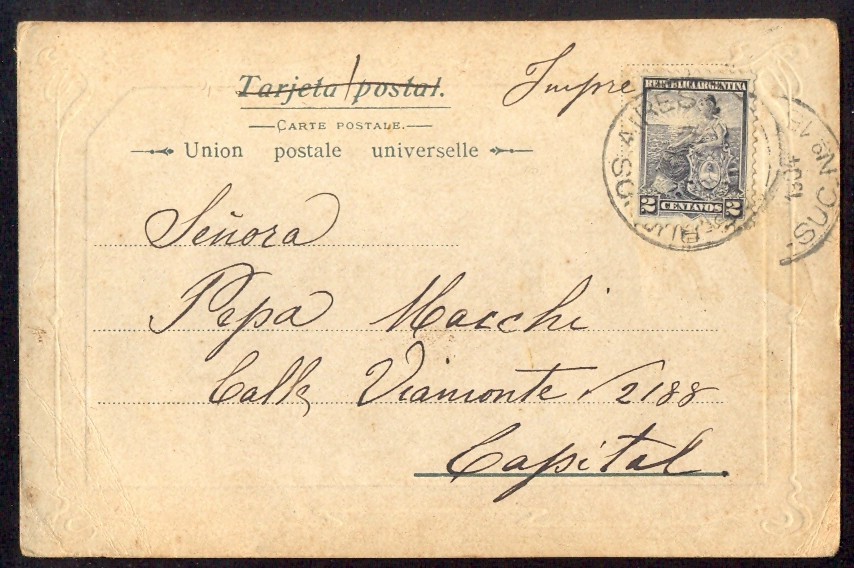 Tarjeta postal.
Impre
CARTE POSTALE.
Union postale universelle
REPUBLICA ARGENTINA
2 CENTAVOS 2
1904
SUC
Señora
Pepa Macchi
Calle Viamonte 2188
Capital.